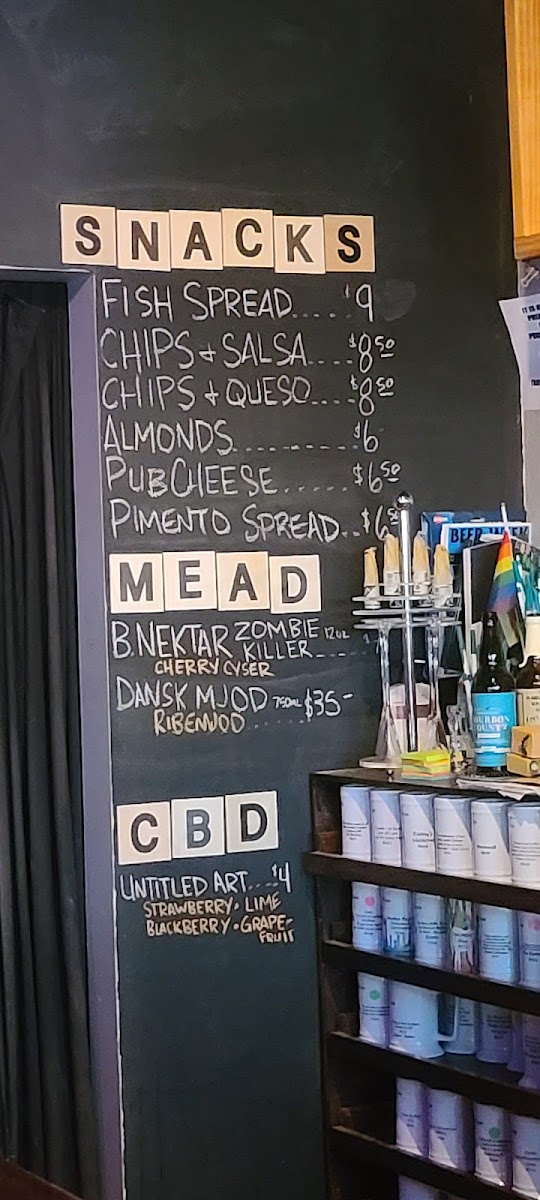 SNACKS
FISH SPREAD..... $9
CHIPS + SALSA.... $8.50
CHIPS + QUESO.... $8.50
ALMONDS.......... $6
PUB CHEESE...... $6.50
PIMENTO SPREAD.. $6.50
MEAD
B. NEKTAR ZOMBIE KILLER 12oz .... $
CHERRY CYSER
DANSK MJOD 750ml $35-
RIBEMJOD ......
CBD
UNTITLED ART.... $4
STRAWBERRY • LIME
BLACKBERRY • GRAPE-
FRUIT
BEER WEEK
BOURBON
COUNTY
IT IS